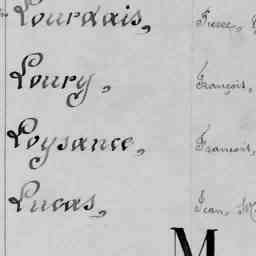 Lourdais, Pierre,
Loury, François,
Loysance, François,
Lucas, Jean, M
M